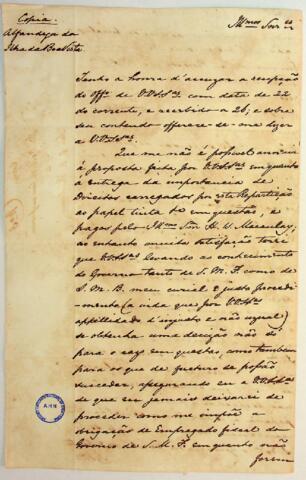 Copia.
Alfandega da
Ilha da Boa Vista
Illmos Snres
Tenho a honra d'accuzar a recepção
do Offo de V.V.S.Sas com data de 22
do corrente, e recebido a 26; e sobre
seu contendo offerece-se-me dizer
a V.V.S.Sas
Que me não é possivel annuir
á proposta feita por V.V.S.Sas emquanto
á entrega da importancia de
Direitos carregados por esta Repartição
ao papel em questão, e
pagos pelo Illmo Snr H. W. Macaulay;
no entanto muita satisfação terei
que V.V.S.Sas levando ao conhecimento
do Governo tanto de S. M. F. como de
S. M. B. meu curial e justo procedi-
mento (a vida que por V.V.S.Sas
appellidado d'injusto e não usual)
se obtenha uma decizão não só
para o cazo em questão, como tambem
para os que de futuro se possão
succeder, assegurando eu a V.V.S.Sas
de que eu jamais deixarei de
proceder como me impõe a
obrigação de Empregado fiscal do
Governo de S. M. F. emquanto não
forem
A.H.N.